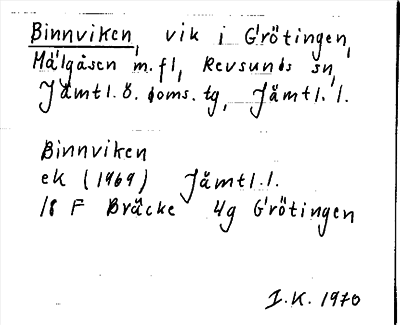 Binnviken, vik i Grötingen,
Målgåsen m.fl, Revsunds sn,
Jämtl.ö. doms. tg, Jämtl. l.
Binnviken
ek (1969) Jämtl.l.
18 F Bräcke 4g Grötingen
I.K. 1970